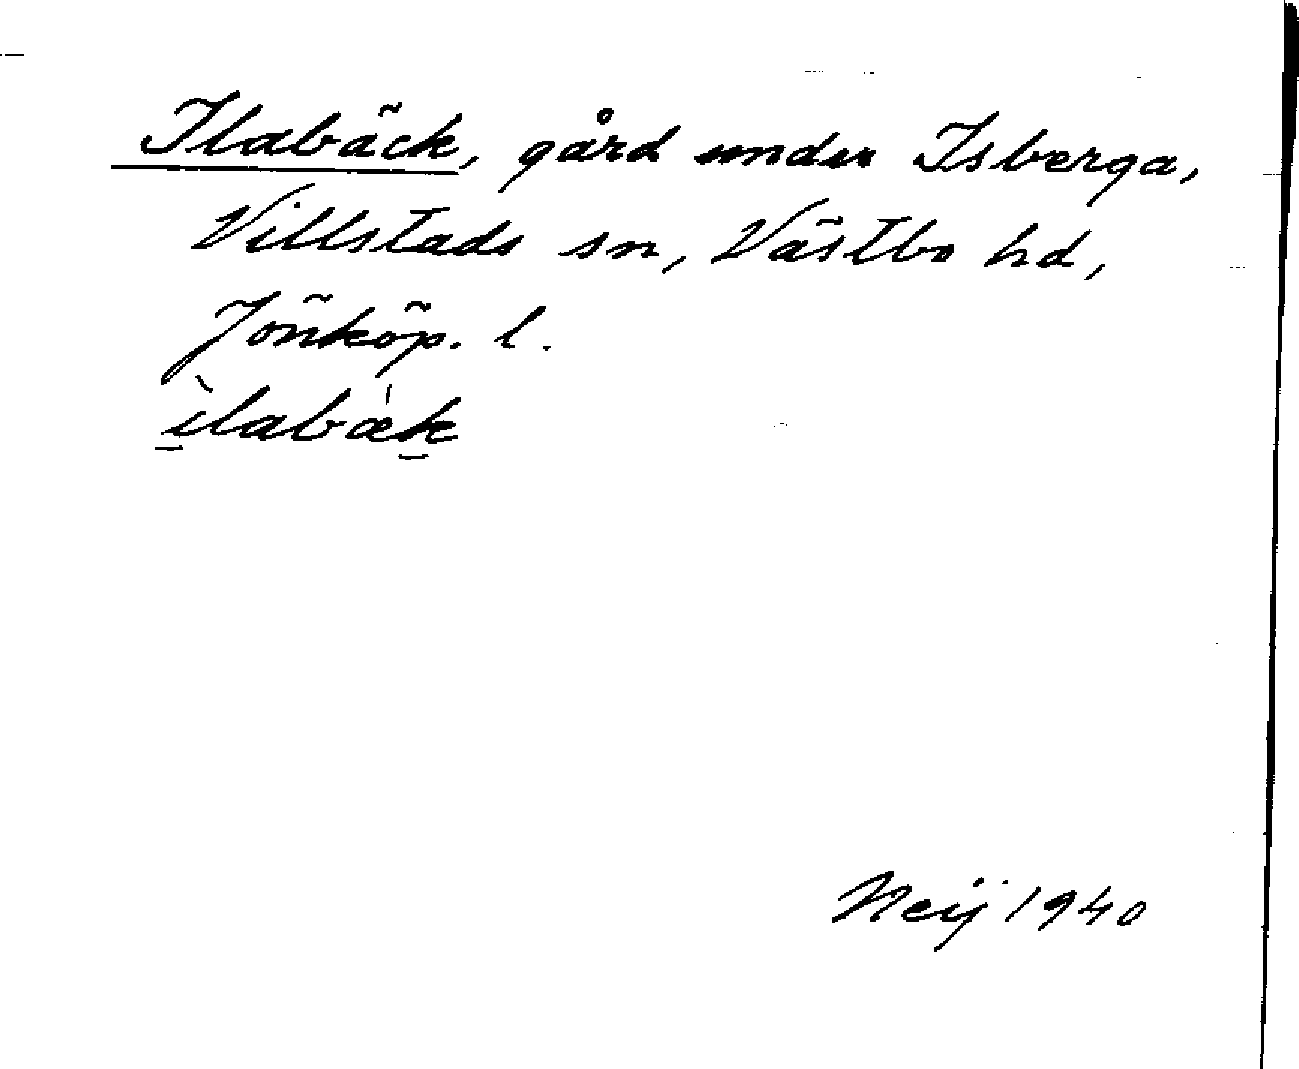 Ilabäck, gård under Isberga,
Villstads sn, Västbo hd,
Jönköp. l.
ìlabæ̍k
Neij 1940